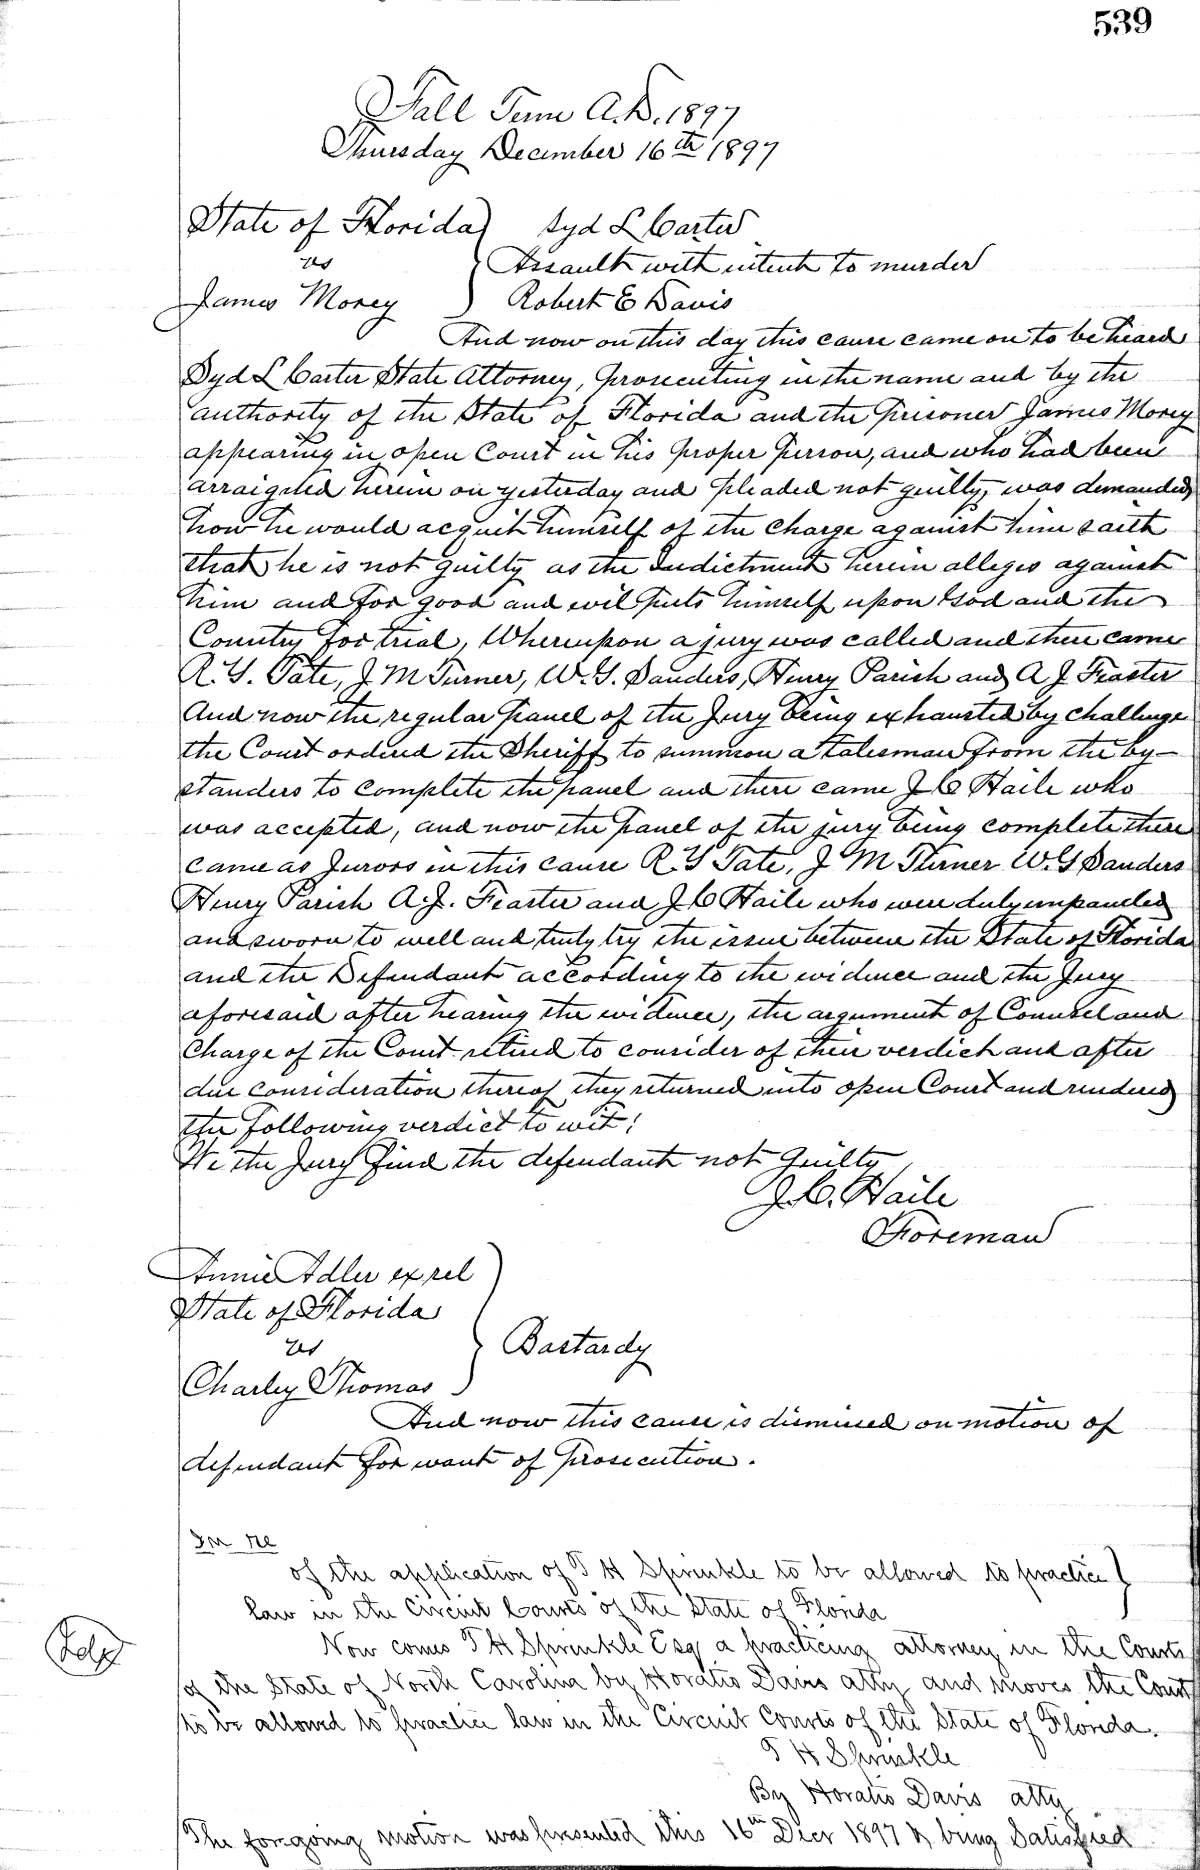 539
Fall Term A.D. 1897
Thursday December 16th 1897
State of Florida) Syd L Carter
vs } Assault with intent to murder
James Morey ) Robert E Davis
And now on this day this cause came on to be heard
Syd L Carter State Attorney, prosecuting in the name and by the
authority of the State of Florida and the prisoner James Morey
appearing in open Court in his proper person, and who had been
arraigned herein on yesterday and pleaded not guilty, was demanded
how he would acquit himself of the charge against him saith
that he is not guilty as the Indictment herein alleges against
him and for good and evil puts himself upon God and the
Country for trial, Whereupon a jury was called and there came
R. G. Tate, J M Turner, W. G. Sanders, Henry Parish and A J Feaster
And now the regular panel of the Jury being exhausted by challenge
the Court ordered the Sheriff to summon a talesman from the by-
standers to complete the panel and there came J C Haile who
was accepted, and now the panel of the jury being complete there
came as Jurors in this cause R. G Tate, J M Turner W. G Sanders
Henry Parish A. J. Feaster and J C Haile who were duly empaneled
and sworn to well and truly try the issue between the State of Florida
and the Defendant according to the evidence and the Jury
aforesaid after hearing the evidence, the argument of Counsel and
Charge of the Court retired to consider of their verdict and after
due consideration thereof they returned into open Court and rendered
the following verdict to wit:
We the Jury find the defendant not guilty
J. C. Haile
Foreman
Annie Adler ex rel )
State of Florida
vs } Bastardy
Charley Thomas )
And now this cause is dismissed on motion of
defendant for want of prosecution.
In re
of the application of T H Sprinkle to be allowed to practice }
law in the Circuit Courts of the State of Florida
Now comes T H Sprinkle Esq a practicing attorney in the Courts
of the State of North Carolina by Horatio Davis atty and moves the Court
to be allowed to practice law in the Circuit Courts of the State of Florida.
T H Sprinkle
By Horatio Davis atty
The foregoing motion was presented this 16th Decr 1897 & being satisfied